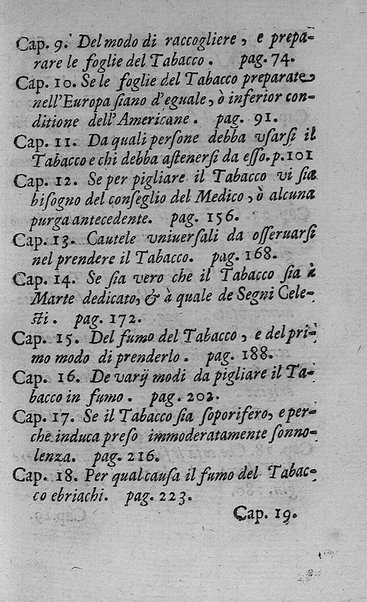 Cap. 9. Del modo di raccogliere, e prepa-
rare le foglie del Tabacco. pag. 74.
Cap. 10. Se le foglie del Tabacco preparate
nell'Europa siano d'eguale, ò inferior con-
ditione dell'Americane. pag. 91.
Cap. 11. Da quali persone debba vsarsi il
Tabacco e chi debba astenersi da esso. p.101
Cap. 12. Se per pigliare il Tabacco vi sia
bisogno del conseglio del Medico, ò alcuna
purga antecedente. pag. 156.
Cap. 13. Cautele vniuersali da osseruarsi
nel prendere il Tabacco. pag. 168.
Cap. 14. Se sia vero che il Tabacco sia à
Marte dedicato, & à quale de Segni Cele-
sti. pag. 172.
Cap. 15. Del fumo del Tabacco, e del pri-
mo modo di prenderlo. pag. 188.
Cap. 16. De varij modi da pigliare il Ta-
bacco in fumo. pag. 202.
Cap. 17. Se il Tabacco sia soporifero, e per-
che induca preso immoderatamente sonno-
lenza. pag. 216.
Cap. 18. Per qual causa il fumo del Tabac-
co ebriachi. pag. 223.
Cap. 19.